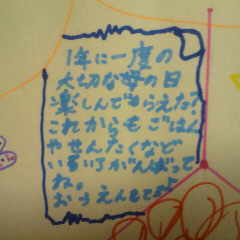 1年に一度の
大切な母の日
楽しんでもらえた?
これからもごはん
やせんたくなど
いろいろがんばって
ね。
おうえんしてるよ